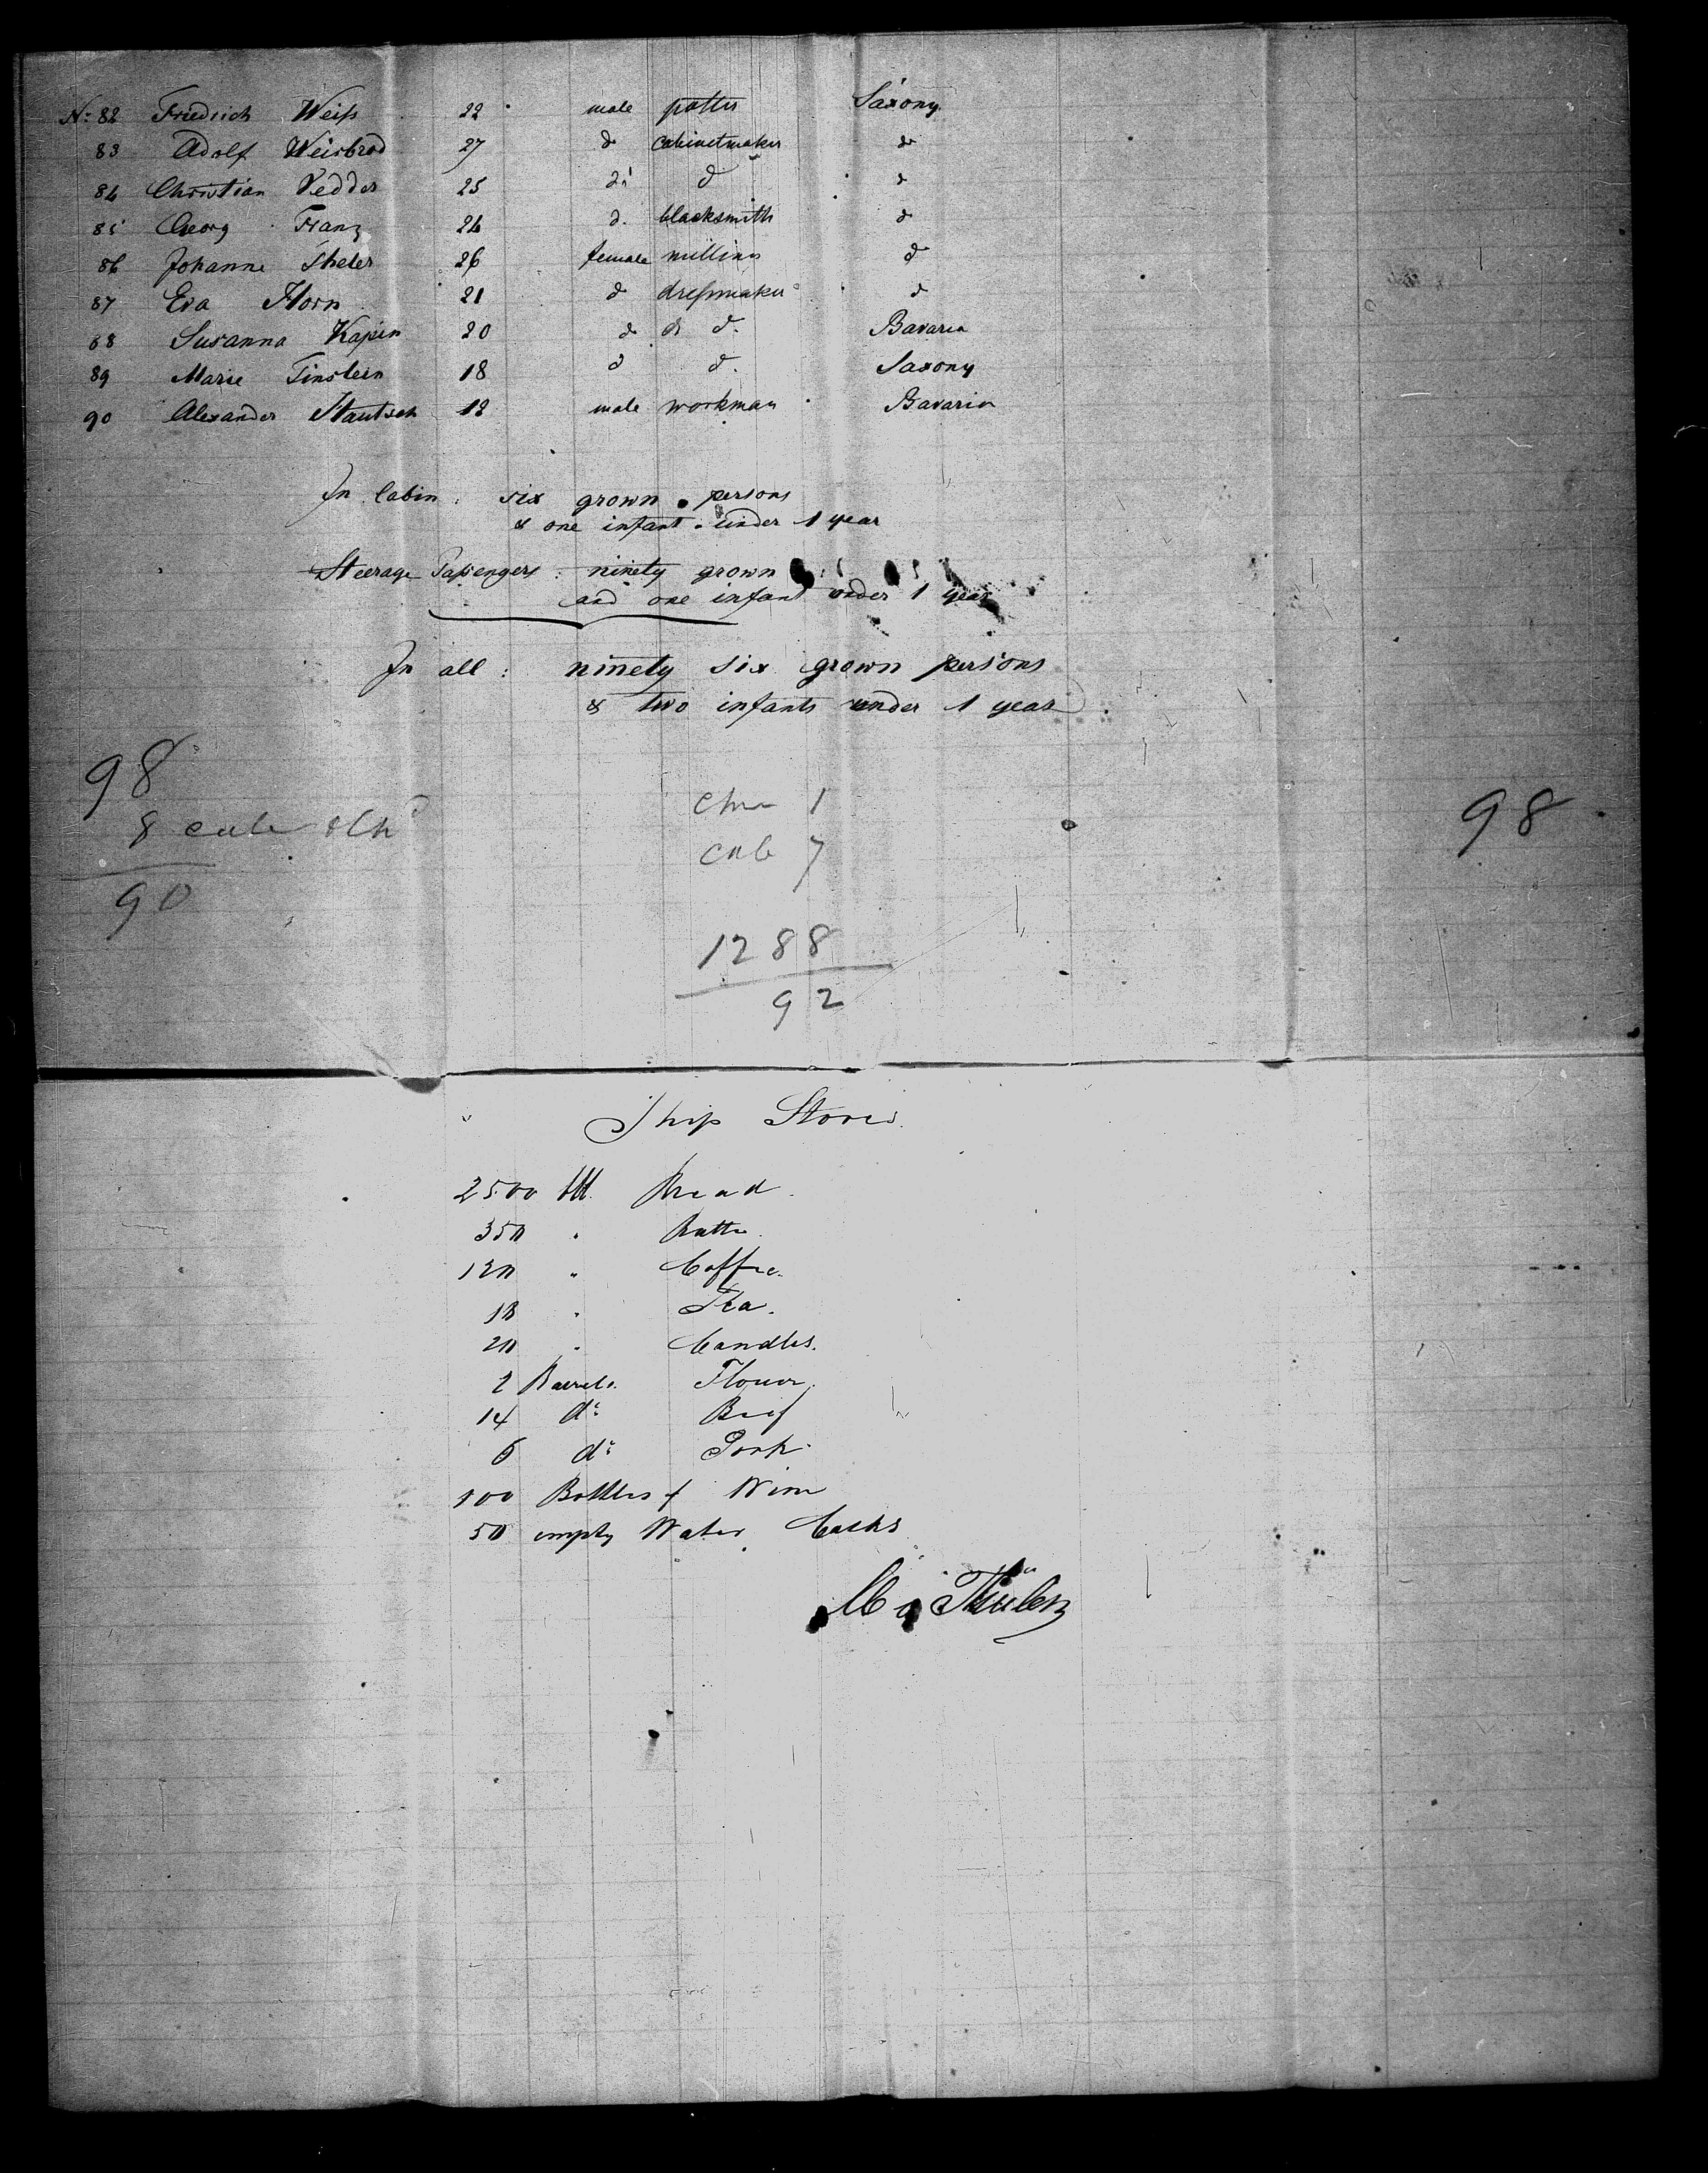 No: 82 Friedrich Weiſs 22 male potter Saxony
83 Adolf Weisbrod 27 do cabinetmaker do
84 Christian Vedder 25 do do do
85 Georg Franz 24 do blacksmith do
86 Johanne Sheler 26 female milliner do
87 Eva Horn 21 do dreſsmaker do
88 Susanna Kapin 20 do do do Bavaria
89 Marie Finstein 18 do do Saxony
90 Alexander Stautsch 18 male workman Bavaria
In Cabin: six grown persons
& one infant under 1 year
Steerage Paſsengers: ninety grown
and one infant under 1 year
In all: ninety six grown persons
& two infants under 1 year
98
8
90
1
cab 7
98
1288
92
Ship Stores.
2500 lbs. Bread.
350 " Butter.
120 " Coffee.
18 " Tea.
20 " Candles.
2 Barrels. Flour.
14 do Beef
6 do Pork.
100 Bottles of Wine
50 empty Water Casks